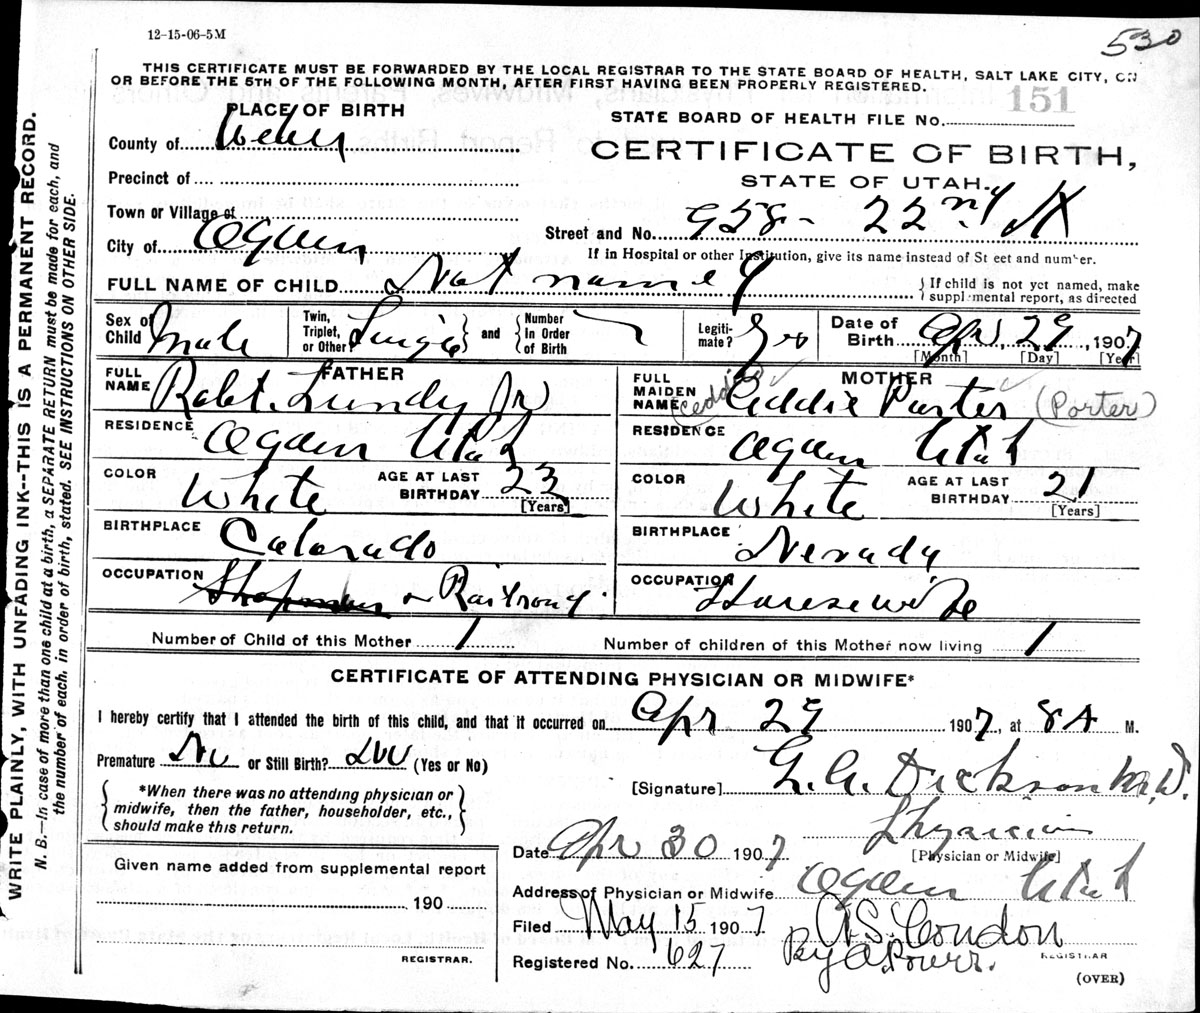 12-15-06-5M
530
THIS CERTIFICATE MUST BE FORWARDED BY THE LOCAL REGISTRAR TO THE STATE BOARD OF HEALTH, SALT LAKE CITY, ON
OR BEFORE THE 5TH OF THE FOLLOWING MONTH, AFTER FIRST HAVING BEEN PROPERLY REGISTERED.
WRITE PLAINLY, WITH UNFADING INK--THIS IS A PERMANENT RECORD.
N. B.—In case of more than one child at a birth, a SEPARATE RETURN must be made for each, and
the number of each, in order of birth, stated. SEE INSTRUCTIONS ON OTHER SIDE.
PLACE OF BIRTH
STATE BOARD OF HEALTH FILE No. 151
County of Weber
CERTIFICATE OF BIRTH,
STATE OF UTAH.
Precinct of
Town or Village of
City of Ogden
Street and No. 958 - 22nd St
If in Hospital or other Institution, give its name instead of Street and number.
FULL NAME OF CHILD Not named
If child is not yet named, make
supplemental report, as directed
Sex of Child Male
Twin, Triplet, or Other? Single and Number in Order of Birth
Legitimate? Yes
Date of Birth Apr, 29, 1907
[Month] [Day] [Year]
FATHER
FULL NAME Robt. Lundy Jr
MOTHER
FULL MAIDEN NAME (Eddie) Eddie Parter (Porter)
RESIDENCE Ogden Utah
RESIDENCE Ogden Utah
COLOR White AGE AT LAST BIRTHDAY 23 [Years]
COLOR White AGE AT LAST BIRTHDAY 21 [Years]
BIRTHPLACE Colorado
BIRTHPLACE Nevada
OCCUPATION Railroad
OCCUPATION Housewife
Number of Child of this Mother 1
Number of children of this Mother now living 1
CERTIFICATE OF ATTENDING PHYSICIAN OR MIDWIFE*
I hereby certify that I attended the birth of this child, and that it occurred on Apr 29 1907, at 8 A M.
Premature No or Still Birth? No (Yes or No)
*When there was no attending physician or
midwife, then the father, householder, etc.,
should make this return.
[Signature] Dickson M.D.
Physician
[Physician or Midwife]
Date Apr 30 1907
Address of Physician or Midwife Ogden Utah
Given name added from supplemental report
190
REGISTRAR.
Filed May 15 1907
A.S. Condon
REGISTRAR
Registered No. 627
By A. Powers.
(OVER)